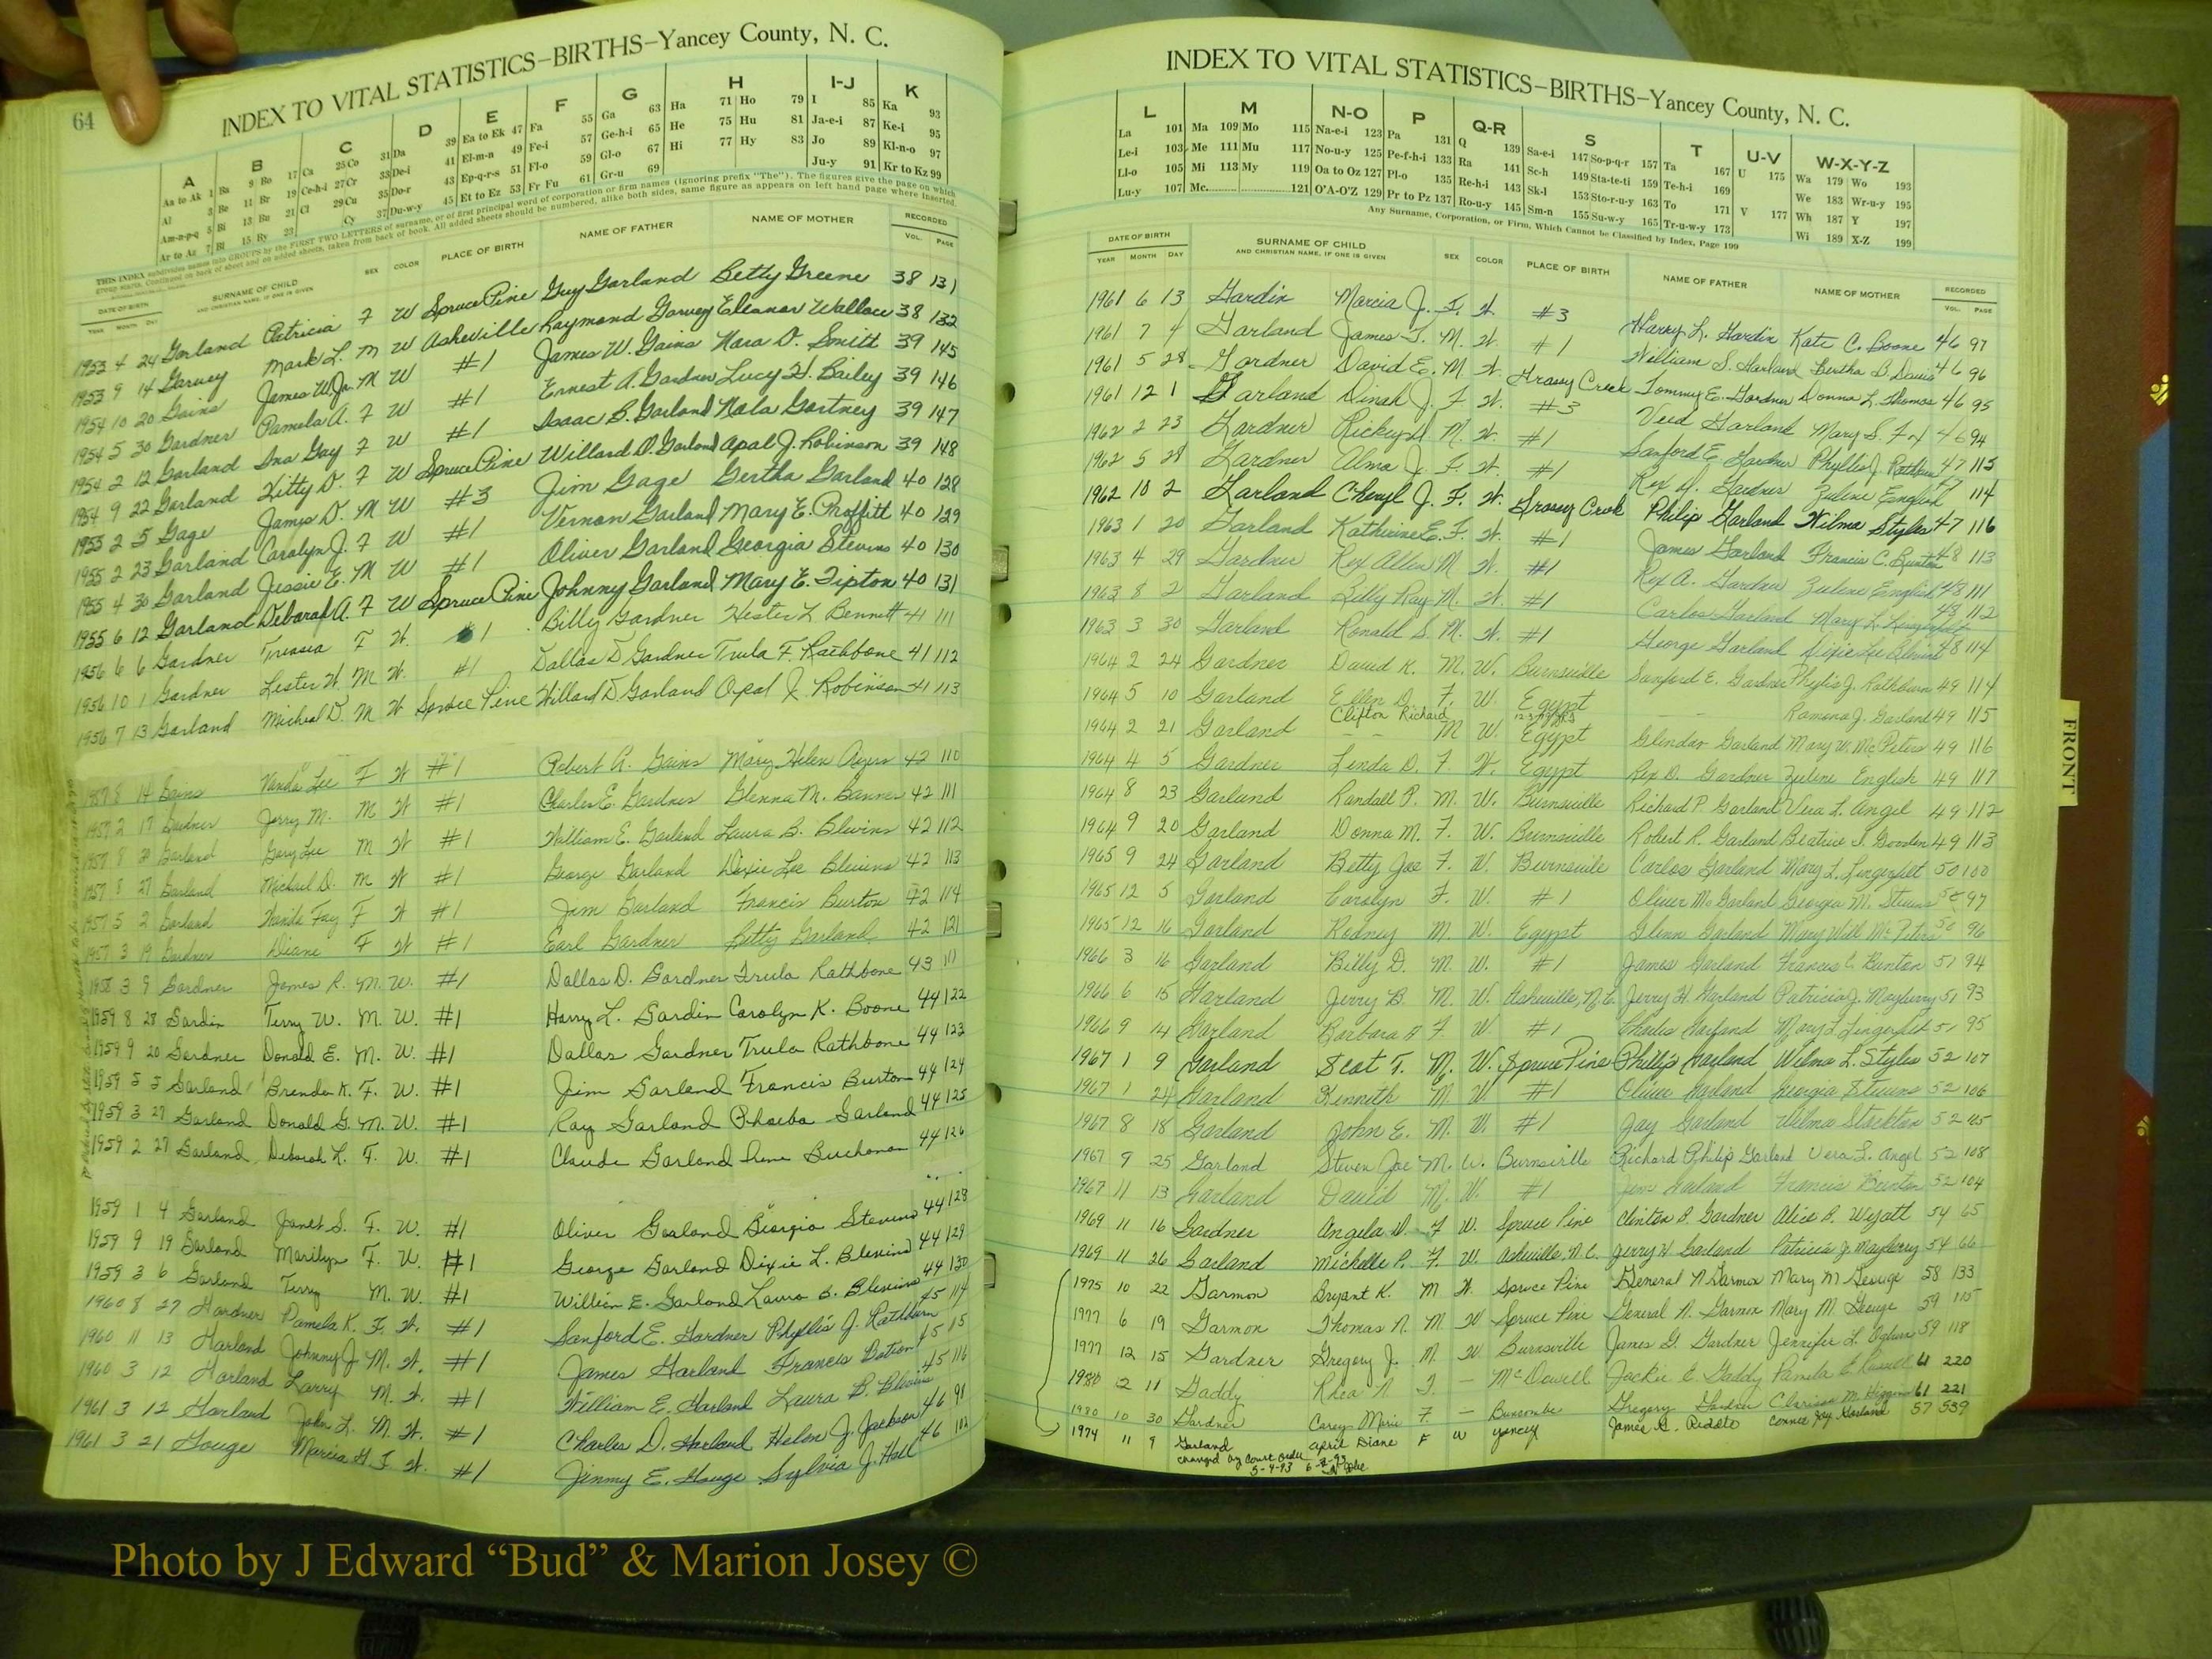 64
INDEX TO VITAL STATISTICS–BIRTHS–Yancey County, N. C.
A B C D E F G H I-J K
Aa to Ak 1 Ba 9 Bo 17 Ca 25 Co 31 Da 39 Ea to Ek 47 Fa 55 Ga 63 Ha 71 Ho 79 I 85 Ka 93
Al 3 Be 11 Br 19 Ce-h-i 27 Cr 33 De-i 41 El-m-n 49 Fe-i 57 Ge-h-i 65 He 75 Hu 81 Ja-e-i 87 Ke-i 95
Am-n-p-q 5 Bi 13 Bu 21 Cl 29 Cu 35 Do-r 43 Ep-q-r-s 51 Fl-o 59 Gl-o 67 Hi 77 Hy 83 Jo 89 Kl-n-o 97
Ar to Az 7 Bl 15 By 23 Cy 37 Du-w-y 45 Et to Ez 53 Fr Fu 61 Gr-u 69 Ju-y 91 Kr to Kz 99
THIS INDEX subdivides names into GROUPS by the FIRST TWO LETTERS of surname, or of first principal word of corporation or firm names (ignoring prefix "The"). The figures give the page on which
group starts. Continued on back of sheet and on added sheets, taken from back of book. All added sheets should be numbered, alike both sides, same figure as appears on left hand page where inserted.
DATE OF BIRTH SURNAME OF CHILD SEX COLOR PLACE OF BIRTH NAME OF FATHER NAME OF MOTHER RECORDED
YEAR MONTH DAY AND CHRISTIAN NAME, IF ONE IS GIVEN VOL. PAGE
1953 4 24 Garland Patricia F W Spruce Pine Guy Garland Betty Greene 38 131
1953 9 14 Garvey Mark L. M W Asheville Raymond Garvey Eleanor Wallace 38 132
1954 10 20 Gains James W. Jr. M W #1 James W. Gains Nara O. Smith 39 145
1954 5 30 Gardner Pamela A. F W #1 Ernest A. Gardner Lucy H. Bailey 39 146
1954 2 12 Garland Ina Gay F W #1 Isaac B. Garland Nola Gortney 39 147
1954 9 22 Garland Kitty D. F W Spruce Pine Willard D. Garland Opal J. Robinson 39 148
1955 2 5 Gage James D. M W #3 Jim Gage Bertha Garland 40 128
1955 2 23 Garland Carolyn J. F W #1 Vernon Garland Mary E. Proffitt 40 129
1955 4 30 Garland Jessie E. M W #1 Oliver Garland Georgia Stevens 40 130
1955 6 12 Garland Deborah A. F W Spruce Pine Johnny Garland Mary E. Tipton 40 131
1956 6 6 Gardner Treasea F W. 1 Billy Gardner Hester L Bennett 41 111
1956 10 1 Gardner Lester W. M W. #1 Dallas D Gardner Trula F. Rathbone 41 112
1956 7 13 Garland Micheal D. M W Spruce Pine Willard D. Garland Opal J. Robinson 41 113
1957 8 14 Gains Vanda Lee F W #1 Robert A. Gains Mary Helen Ayers 42 110
1957 2 17 Gardner Jerry M. M W #1 Charles E. Gardner Glenna M. Banner 42 111
1957 8 Garland Gary Lee M W #1 William E. Garland Laura B. Blevins 42 112
1957 8 27 Garland Michael D. M W #1 George Garland Dixie Lee Blevins 42 113
1957 5 2 Garland Fay F W #1 Jim Garland Francis Burton 42 114
1957 3 19 Gardner Diane F W #1 Earl Gardner Betty Garland 42 121
1958 3 9 Gardner James R. M. W. #1 Dallas D. Gardner Trula Rathbone 43 111
1959 8 28 Gardin Terry W. M. W. #1 Harry L. Gardin Carolyn K. Boone 44 122
1959 9 20 Gardner Donald E. M. W. #1 Dallas Gardner Trula Rathbone 44 123
1959 5 5 Garland Brenda K. F. W. #1 Jim Garland Francis Burton 44 124
1959 3 27 Garland Donald G. M. W. #1 Ray Garland Phoeba Garland 44 125
1959 2 27 Garland Deborah L. F. W. #1 Claude Garland Irene Buchanan 44 126
1959 1 4 Garland Janet S. F. W. #1 Oliver Garland Georgia Stevens 44 128
1959 9 19 Garland Marilyn F. W. #1 George Garland Dixie L. Blevins 44 129
1959 3 6 Garland Terry M. W. #1 William E. Garland Laura B. Blevins 44 130
1960 8 27 Gardner Pamela K. F. W. #1 Sanford E. Gardner Phyllis J. Rathburn 45 114
1960 11 13 Garland Johnny J. M. W. #1 James Garland Francis 45 115
1960 3 12 Garland Larry M. W. #1 William E. Garland Laura B. Blevins 45 116
1961 3 12 Garland John L. M. W. #1 Charles D. Garland Helen J. Jackson 46 91
1961 3 21 Gouge Marcia G. F W. #1 Jimmy E. Gouge Sylvia J. Hall 46 102
INDEX TO VITAL STATISTICS–BIRTHS–Yancey County, N. C.
L M N-O P Q-R S T U-V W-X-Y-Z
La 101 Ma 109 Mo 115 Na-e-i 123 Pa 131 Q 139 Sa-e-i 147 So-p-q-r 157 Ta 167 U 175 Wa 179 Wo 193
Le-i 103 Me 111 Mu 117 No-u-y 125 Pe-f-h-i 133 Ra 141 Sc-h 149 Sta-te-ti 159 Te-h-i 169 We 183 Wr-u-y 195
Ll-o 105 Mi 113 My 119 Oa to Oz 127 Pl-o 135 Re-h-i 143 Sk-l 153 Sto-r-u-y 163 To 171 V 177 Wh 187 Y 197
Lu-y 107 Mc 121 O'A-O'Z 129 Pr to Pz 137 Ro-u-y 145 Sm-n 155 Su-w-y 165 Tr-u-w-y 173 Wi 189 X-Z 199
Any Surname, Corporation, or Firm, Which Cannot be Classified by Index, Page 199
DATE OF BIRTH SURNAME OF CHILD SEX COLOR PLACE OF BIRTH NAME OF FATHER NAME OF MOTHER RECORDED
YEAR MONTH DAY AND CHRISTIAN NAME, IF ONE IS GIVEN VOL. PAGE
1961 6 13 Gardin Marcia J. F. W. #3 Harry L. Gardin Kate C. Boone 46 97
1961 7 4 Garland James T. M. W. #1 William S. Garland Bertha B. Davis 46 96
1961 5 28 Gardner David E. M. W. Grassy Creek Tommy E. Gardner Donna L. Thomas 46 95
1961 12 1 Garland Dinah J. F. W. #3 Veed Garland Mary S. Fox 46 94
1962 2 23 Gardner Rickey M. W. #1 Sanford E. Gardner Phyllis J. Rathburn 47 115
1962 5 28 Gardner Alma J. F. W. #1 Rex D. Gardner Zulene English 47 114
1962 10 2 Garland Cheryl J. F. W. Grassy Creek Philip Garland Wilma Styles 47 116
1963 1 20 Garland Katherine E. F. W. #1 James Garland Francis C. Bunton 48 113
1963 4 29 Gardner Rex Allen M W. #1 Rex A. Gardner Zulene English 48 111
1963 8 2 Garland Betty Ray M. W. #1 Carlos Garland Mary L. 48 112
1963 3 30 Garland Ronald S. M. W. #1 George Garland Dixie Lee Blevins 48 114
1964 2 24 Gardner David K. M. W. Burnsville Sanford E. Gardner Phylis J. Rathburn 49 114
1964 5 10 Garland Ellen D. F. W. Egypt — — Ramona J. Garland 49 115
Clifton Richard
1964 2 21 Garland — — M W. Egypt Glendar Garland Mary W. McPeters 49 116
1964 4 5 Gardner Linda D. F. W. Egypt Rex D. Gardner Zulene English 49 117
1964 8 23 Garland Randall P. M. W. Burnsville Richard P. Garland Vera L. Angel 49 112
1964 9 20 Garland Donna M. F. W. Burnsville Robert R. Garland Beatrice S. Gooden 49 113
1965 9 24 Garland Betty Joe F. W. Burnsville Carlos Garland Mary L. Lingerfelt 50 100
1965 12 5 Garland Carolyn F. W. #1 Oliver Mc Garland Georgia M. Stevens 50 97
1965 12 16 Garland Rodney M. W. Egypt Glenn Garland Mary Will McPeters 50 96
1966 3 16 Garland Billy D. M. W. #1 James Garland Francis C. Bunton 51 94
1966 6 15 Garland Jerry B. M. W. Asheville, N.C. Jerry H. Garland Patricia J. Mayberry 51 93
1966 9 14 Garland Barbara A F. W. #1 Charles Garland Mary L Lingerfelt 51 95
1967 1 9 Garland Scot T. M. W. Spruce Pine Phillip Garland Wilma L. Styles 52 107
1967 1 24 Garland Kennith M. W. #1 Oliver Garland Georgia Stevens 52 106
1967 8 18 Garland John E. M. W. #1 Jay Garland Wilma Stockton 52 105
1967 9 25 Garland Steven Joe M. W. Burnsville Richard Philip Garland Vera L. Angel 52 108
1967 11 13 Garland David M. W. #1 Jim Garland Francis Bunton 52 104
1969 11 16 Gardner Angela D. F W. Spruce Pine Clinton B. Gardner Alice B. Wyatt 54 65
1969 11 26 Garland Michelle P. F W. Asheville, N.C. Jerry H Garland Patricia J. Mayberry 54 66
1975 10 22 Garmon Bryant K. M W. Spruce Pine General N Garmon Mary M George 58 133
1977 6 19 Garmon Thomas N. M. W Spruce Pine General N. Garmon Mary M. George 59 115
1977 12 15 Gardner Gregory J. M. W Burnsville James G. Gardner Jennifer L. Ogburn 59 118
1980 2 11 Gaddy Rhea N. F. — McDowell Jackie E. Gaddy Pamela E. Russell 61 220
1980 10 30 Gardner Carey Marie F. — Buncombe Gregory Gardner Clarissa M. Higgins 61 221
1974 11 9 Garland April Diane F W Yancey James R. Connie Joy Garland 57 539
changed by Court order
5-4-93
FRONT
Photo by J Edward “Bud” & Marion Josey ©